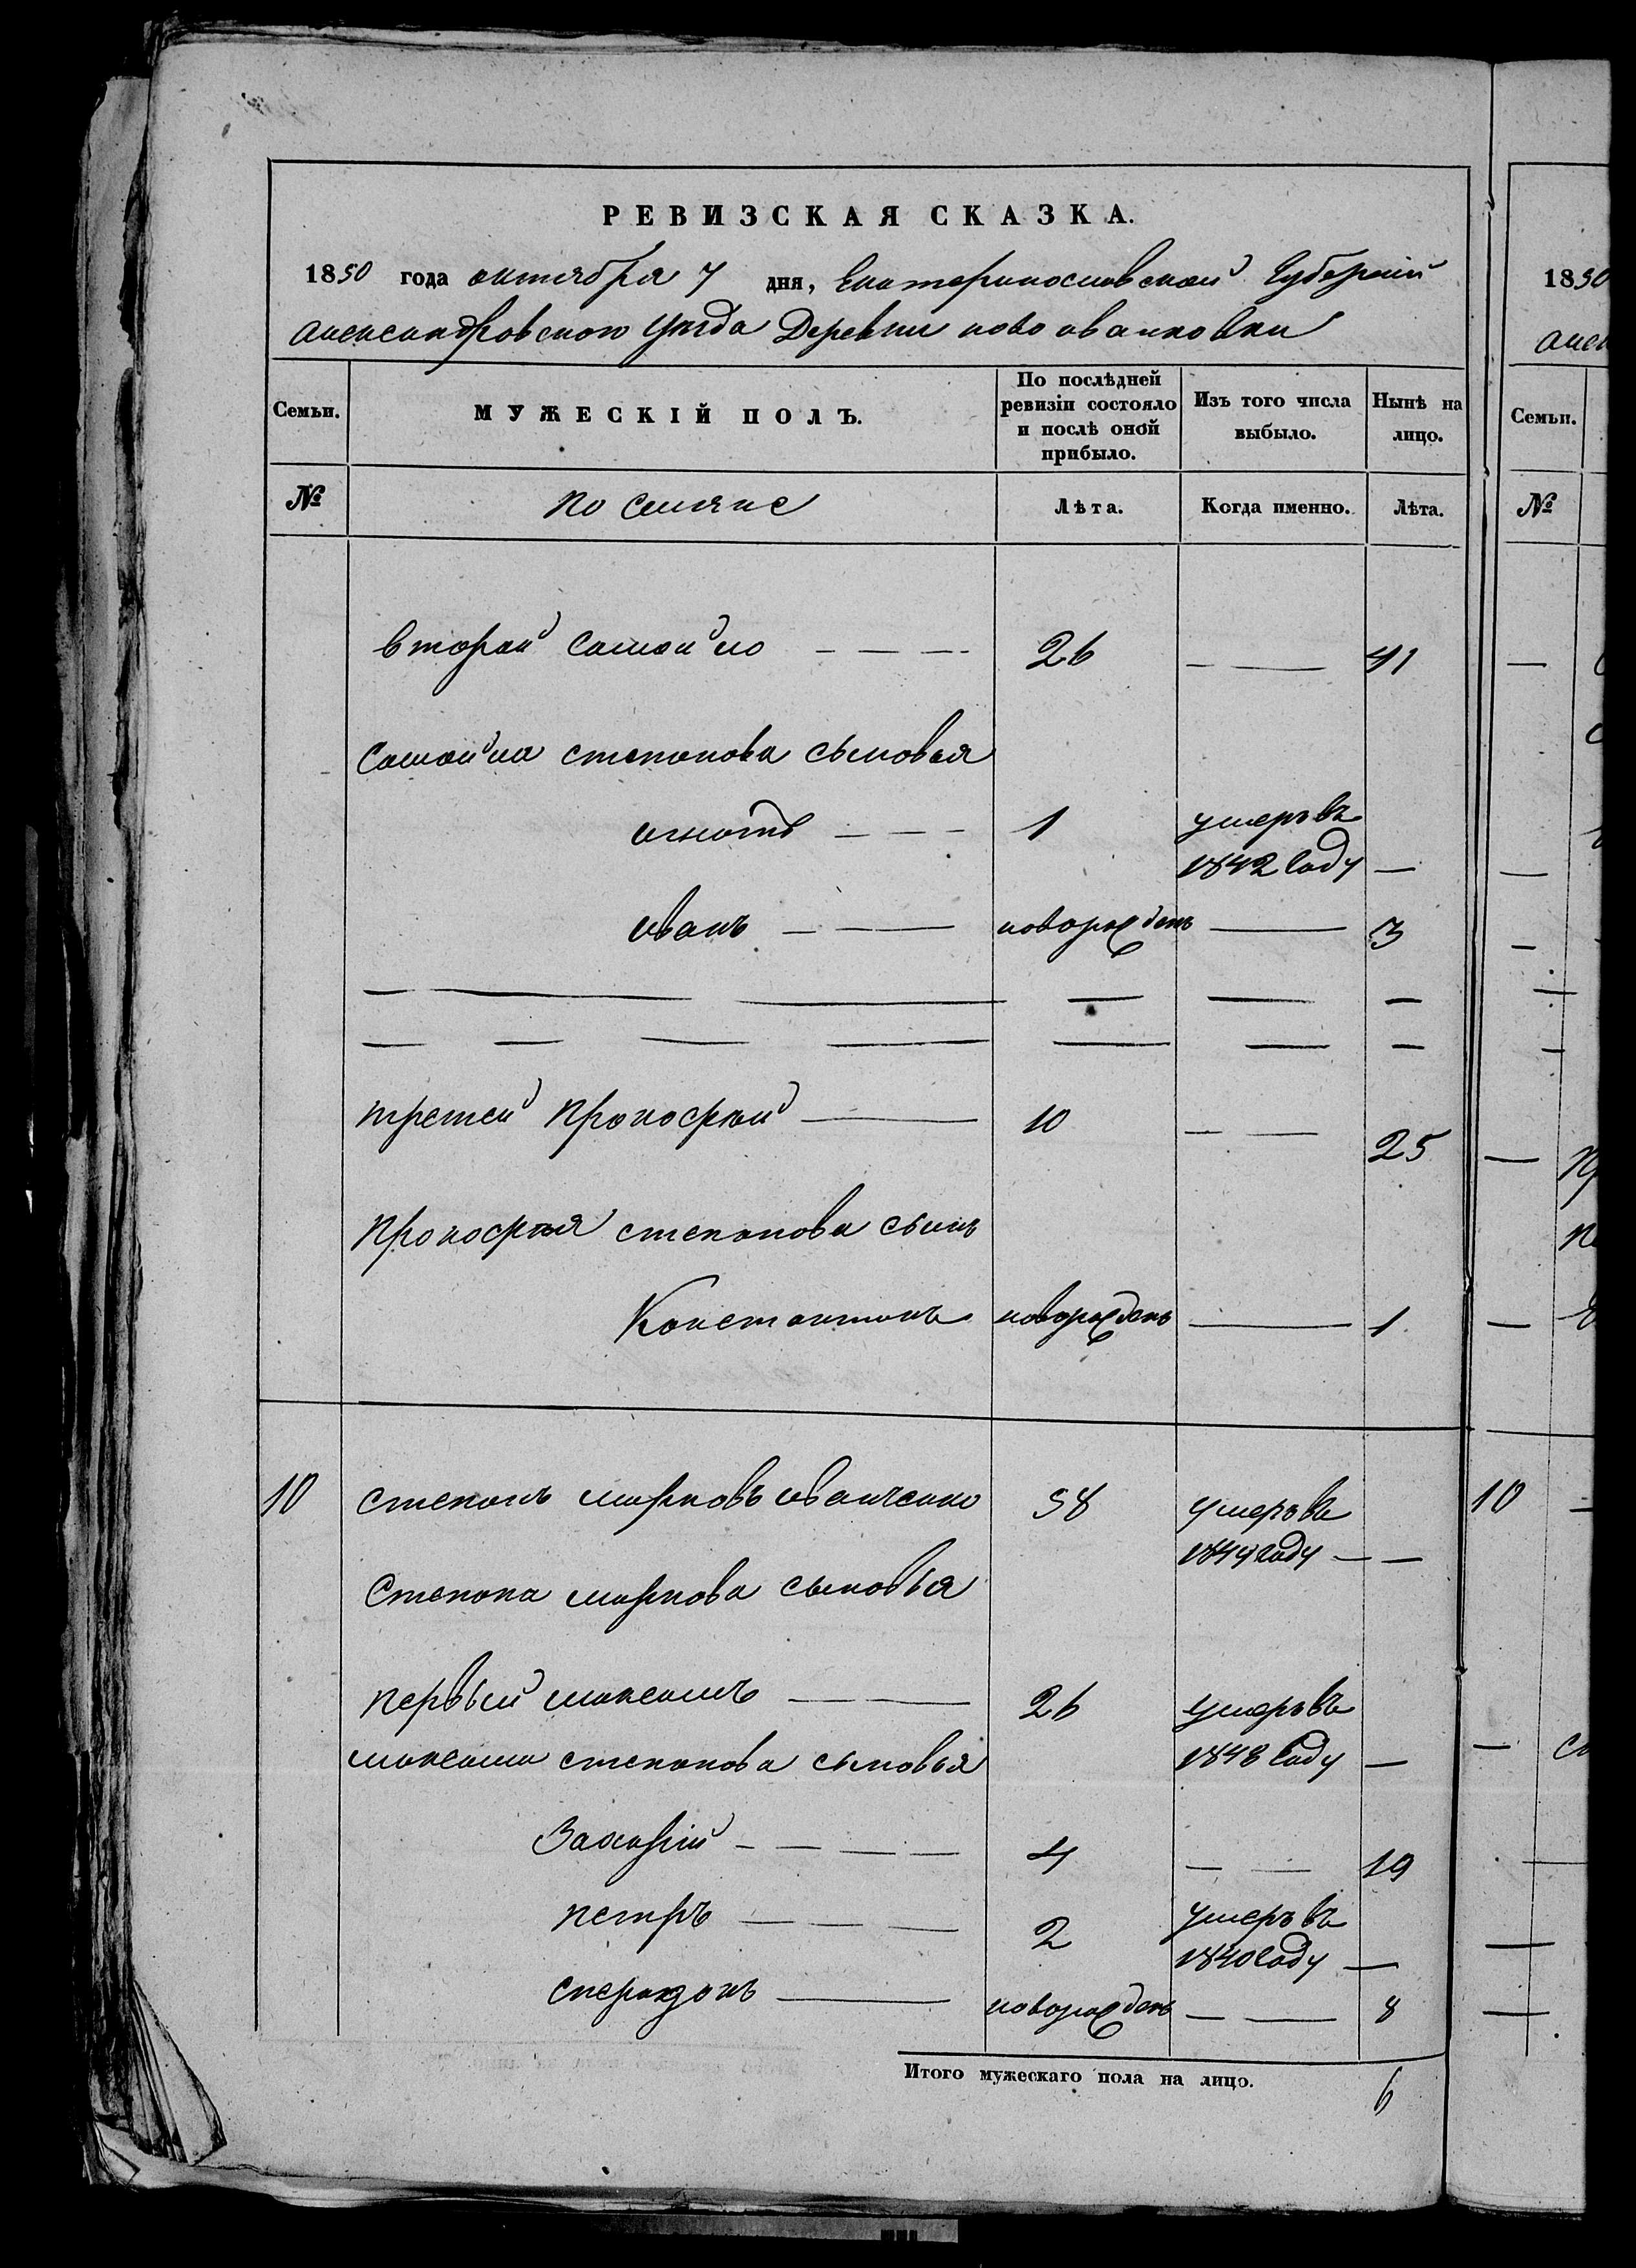 РЕВИЗСКАЯ СКАЗКА.
1850 года октября 7 дня, Екатеринославской Губерніи
александровского уезда Деревни ново ивановки
Семьи.
МУЖЕСКІЙ ПОЛЪ.
По послѣдней ревизіи состояло и послѣ оной прибыло.
Изъ того числа выбыло.
Нынѣ на лицо.
№
Лѣта.
Когда именно.
Лѣта.
вторай Самойло — — — 26 — — 41
Самойла степанова сыновья
игнатъ — — — 1 умеръ въ
1842 году —
иванъ — — новорожденъ — 3
третей Прокофий — 10 — — 25
Прокофия степанова сынъ
Константинъ новорожденъ — 1
10 степанъ марковъ иванченко 58 умеръ въ
году — —
Степана маркова сыновья
первый максимъ — — 26 умеръ въ
максима степанова сыновья 1848 году —
Захарій — — — — 4 — — 19
петръ — — — 2 умеръ въ
1840 году —
спиридонъ — новорожденъ — — 8
Итого мужескаго пола на лицо. 6
1850
Семьи.
№
10